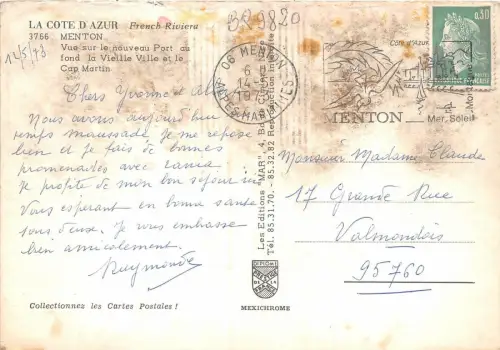 LA COTE D'AZUR French Riviera
3766 MENTON
Vue sur le nouveau Port au
fond la Vieille Ville et le
Cap Martin
14/5/73
BR9820
06 MENTON
ALPES MARITIMES
0,30
MENTON
Mer, Soleil
Chers Yvonne et
Nous avons aujourd'hui
temps maussade. Je me repose
bien et je fais de bonnes
promenades avec
Je profite de mon bon séjour ici
Vous esperant en bonne santé
tous deux. Je vous embrasse
bien amicalement.
Raymonde
Les Editions "MAR", 4,
Tél. 85.31.70. - 85.32.82 Reproduction interdite
Monsieur Madame Claude
17 Grande Rue
Valmondois
95760
DIPLOME
MEXICHROME
Collectionnez les Cartes Postales !